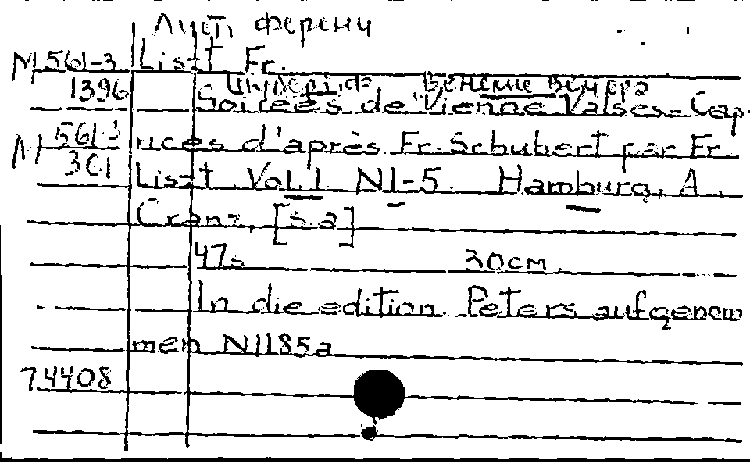 Лист, Ференц
М 561-3 Liszt Fr.
Венские вечера
1396 Soirées de Vienne Valses-Cap-
М 561-3 rices d'après Fr. Schubert par Fr.
301 Liszt Vol.1 N1-5 Hamburg, A.
Cranz, [s.a]
47s 30cм
In die edition Peters aufgenom
men N1185a
74408